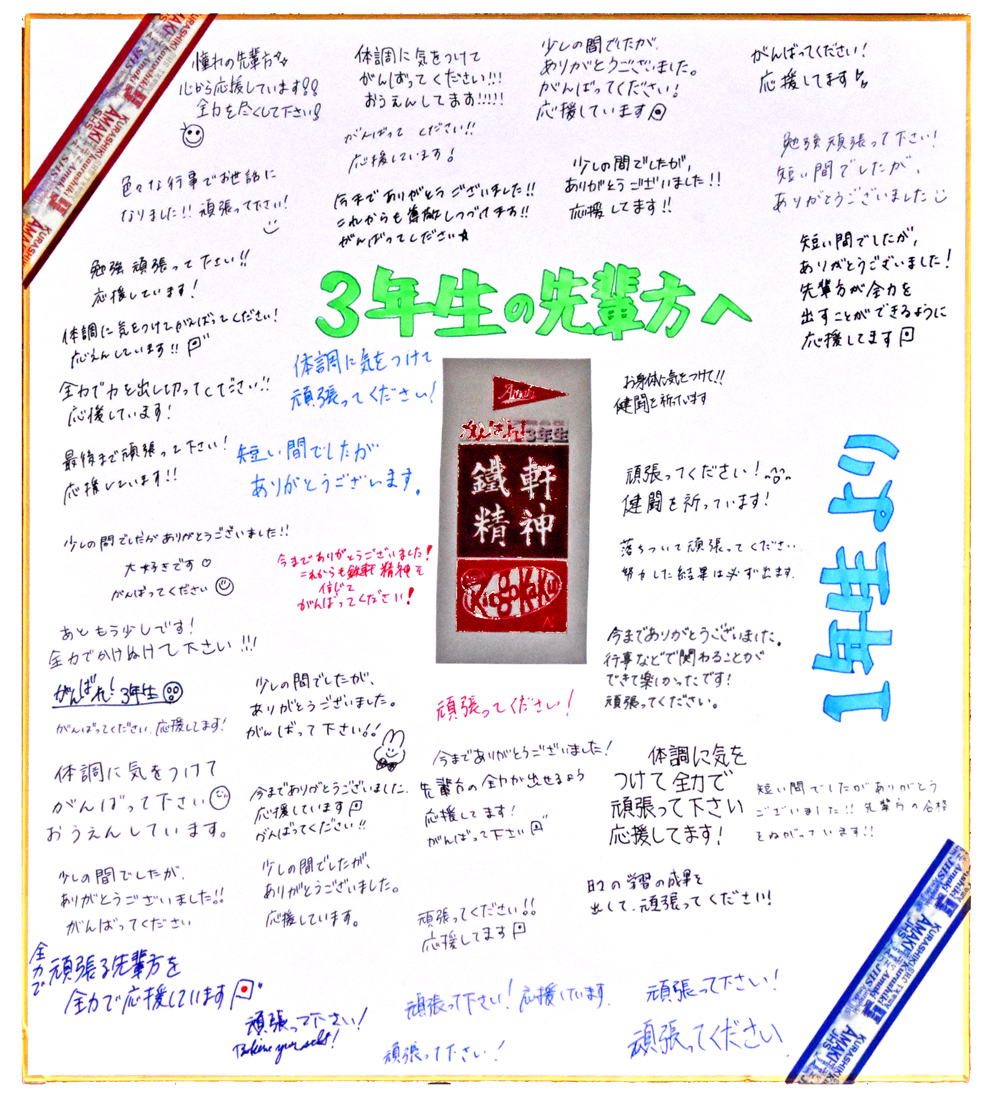 憧れの先輩方へ
心から応援しています!!
全力を尽くして下さい!
体調に気をつけて
がんばってください!!!
おうえんしてます!!!!!
少しの間でしたが、
ありがとうございました。
がんばってください!
応援しています
がんばってください!
応援してます
がんばって ください!!
応援しています!
勉強頑張って下さい!
短い間でしたが、
ありがとうございました
色々な行事でお世話に
なりました!! 頑張って下さい!
今まで ありがとう ございました!!
これからも
がんばってください★
少しの間でしたが、
ありがとうございました!!
応援してます!!
勉強頑張って下さい!!
応援しています!
短い間でしたが、
ありがとうございました!
先輩方が全力を
出すことができるように
応援してます
3年生の先輩方へ
体調に気をつけてがんばってください!
応えんしています!!
体調に気をつけて
頑張ってください!
全力で力を出し切ってください!!
応援しています!
お身体に気をつけて!!
健闘を祈っています
最後まで頑張って下さい!
応援しています!!
短い間でしたが
ありがとうございます。
がんばれ!
3年生
鐵軒
精神
KinggoKaku
頑張ってください!
健闘を祈っています!
1年4組
少しの間でしたがありがとうございました!!
大好きです♡
がんばってください
今までありがとうございました!
これからも鉄軒精神を
信じて
がんばってください!
落ちついて頑張ってください.
努力した結果は必ず出ます.
あともう少しです!
全力でかけぬけて下さい!!!
がんばれ!3年生
がんばってください.応援してます!
少しの間でしたが、
ありがとうございました。
がんばって下さい!!
頑張ってください!
今までありがとうございました。
行事などで関わることが
できて楽しかったです!
頑張ってください。
体調に気をつけて
がんばって下さい
おうえんしています。
今までありがとうございました.
応援しています
がんばってください!!
今までありがとうございました!
先輩方の全力が出せるよう
応援してます!
がんばって下さい
体調に気を
つけて全力で
頑張って下さい
応援してます!
短い間でしたがありがとう
ございました!! 先輩方の合格
をねがっています!!
少しの間でしたが、
ありがとうございました!!
がんばってください
少しの間でしたが、
ありがとうございました。
応援しています。
頑張ってください!!
応援してます
日々の学習の成果を
出して、頑張ってください!
全力で頑張る先輩方を
全力で応援しています
頑張って下さい!
頑張って下さい! 応援しています.
頑張って下さい!
頑張って下さい!
頑張ってください.
KURASHIKI
AMAKI
JHS
KURASHIKI
AMAKI
JHS